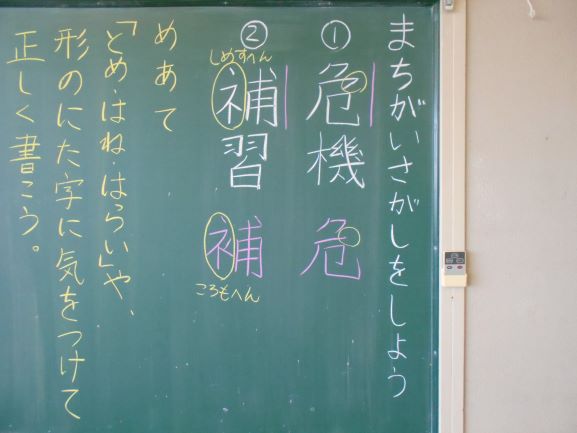 まちがいさがしをしよう
① 危機 危
② しめすへん 補習 補 ころもへん
めあて
「とめ・はね・はらい」や、
形のにた字に気をつけて
正しく書こう。